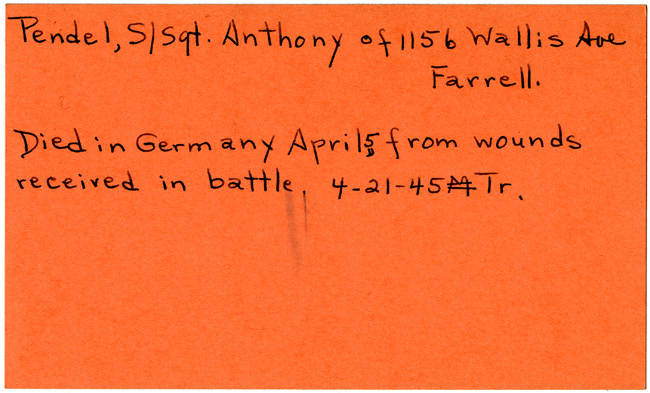 Pendel, S/Sgt. Anthony of 1156 Wallis Ave
Farrell.
Died in Germany April 5, from wounds
received in battle. 4-21-45 Tr.